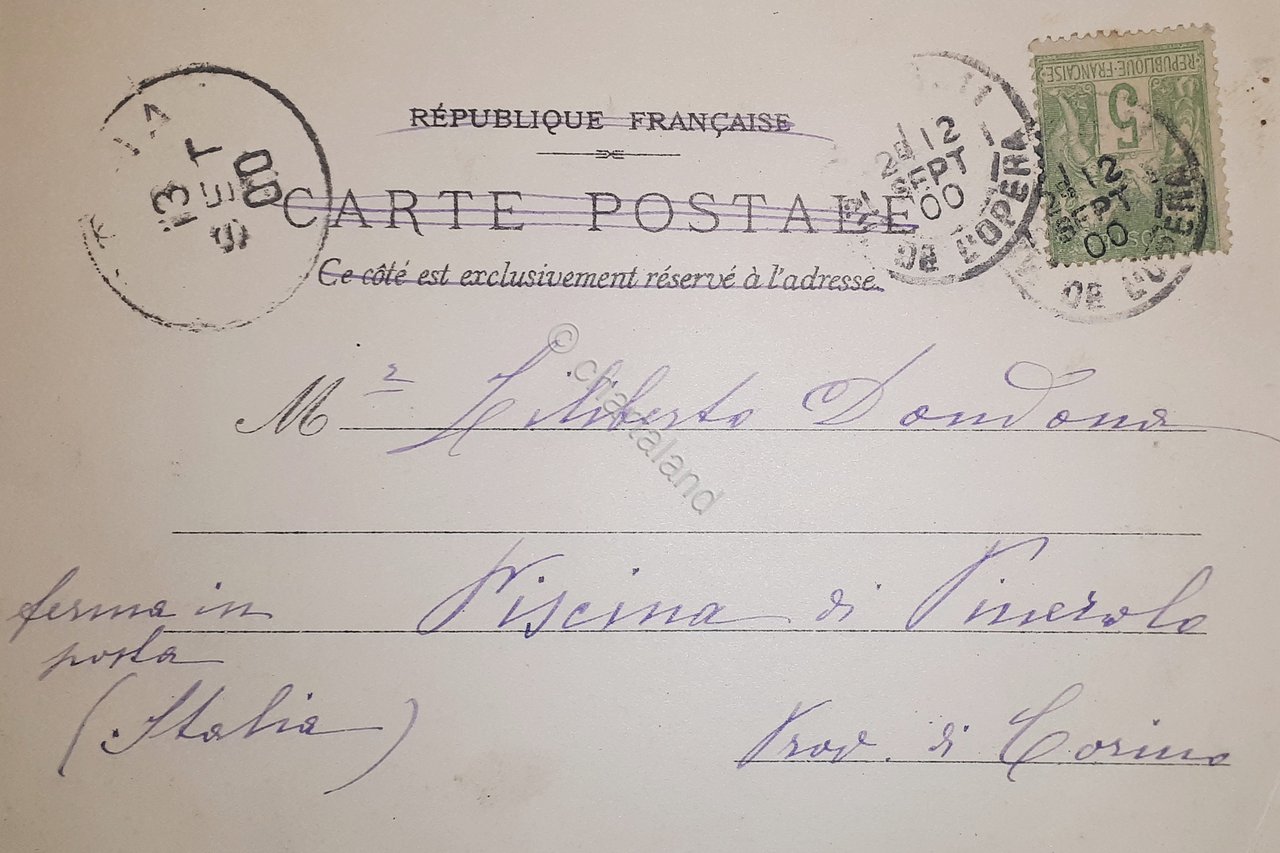 RÉPUBLIQUE FRANÇAISE
CARTE POSTALE
Ce côté est exclusivement réservé à l'adresse.
13
SET
00
12
SEPT
00
DE L'OPERA
REPUBLIQUE-FRANÇAISE
5
12
SEPT
00
DE L'OPERA
© chartaland
Mr Filiberto Dondona
Piscina di Pinerolo
ferma in
posta
(Italia)
Prov. di Torino